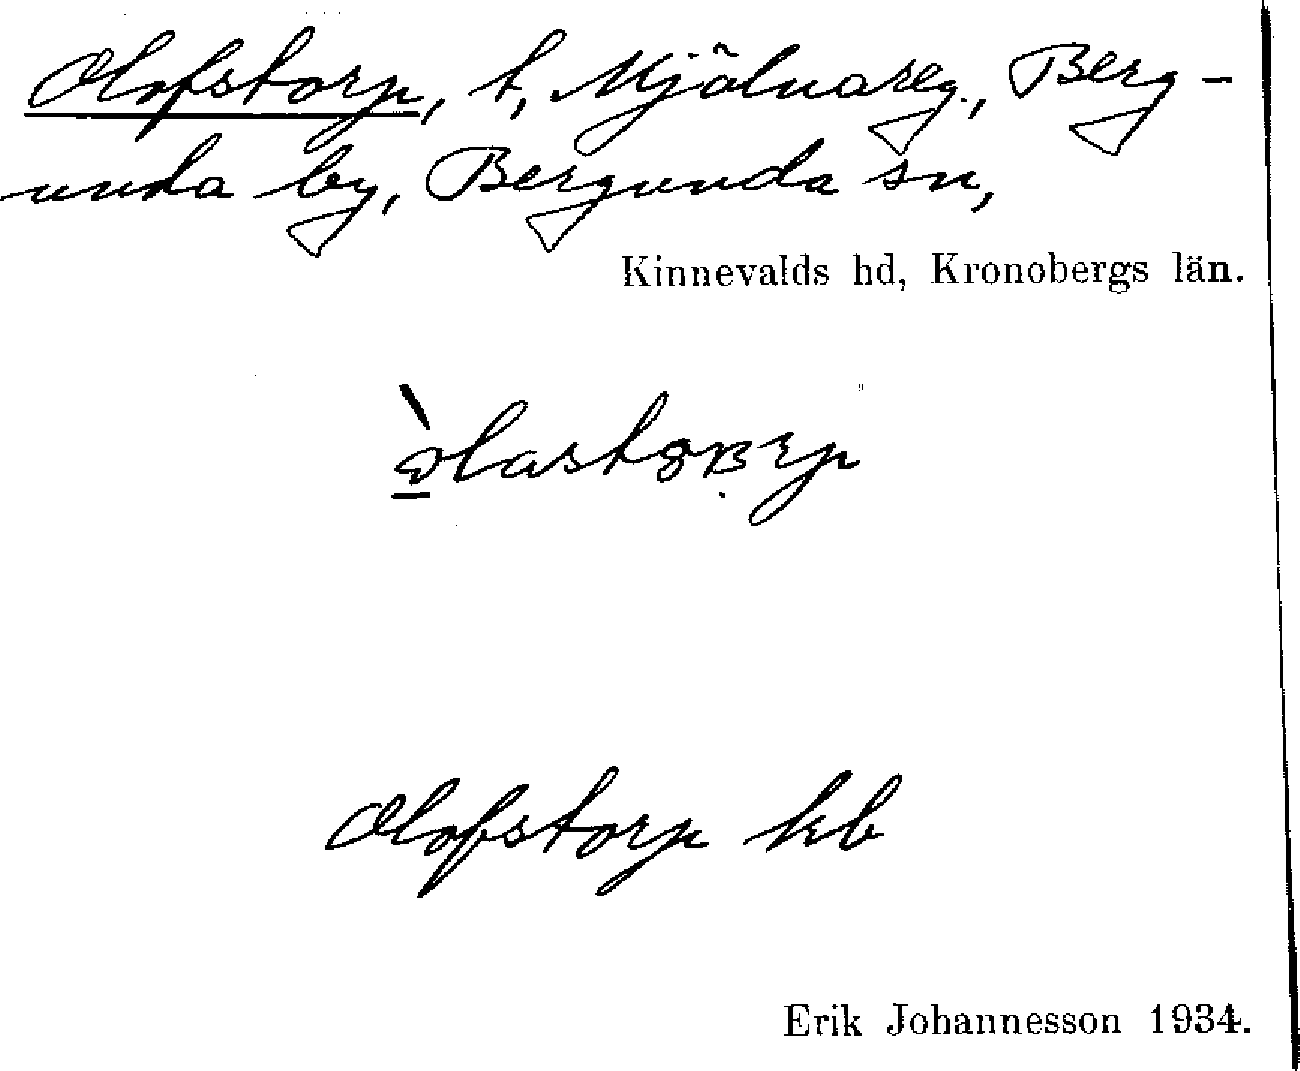 Olofstorp, t, Mjölnareg., Berg-
unda by, Bergunda sn,
Kinnevalds hd, Kronobergs län.
Olofstorp kb
Erik Johannesson 1934.